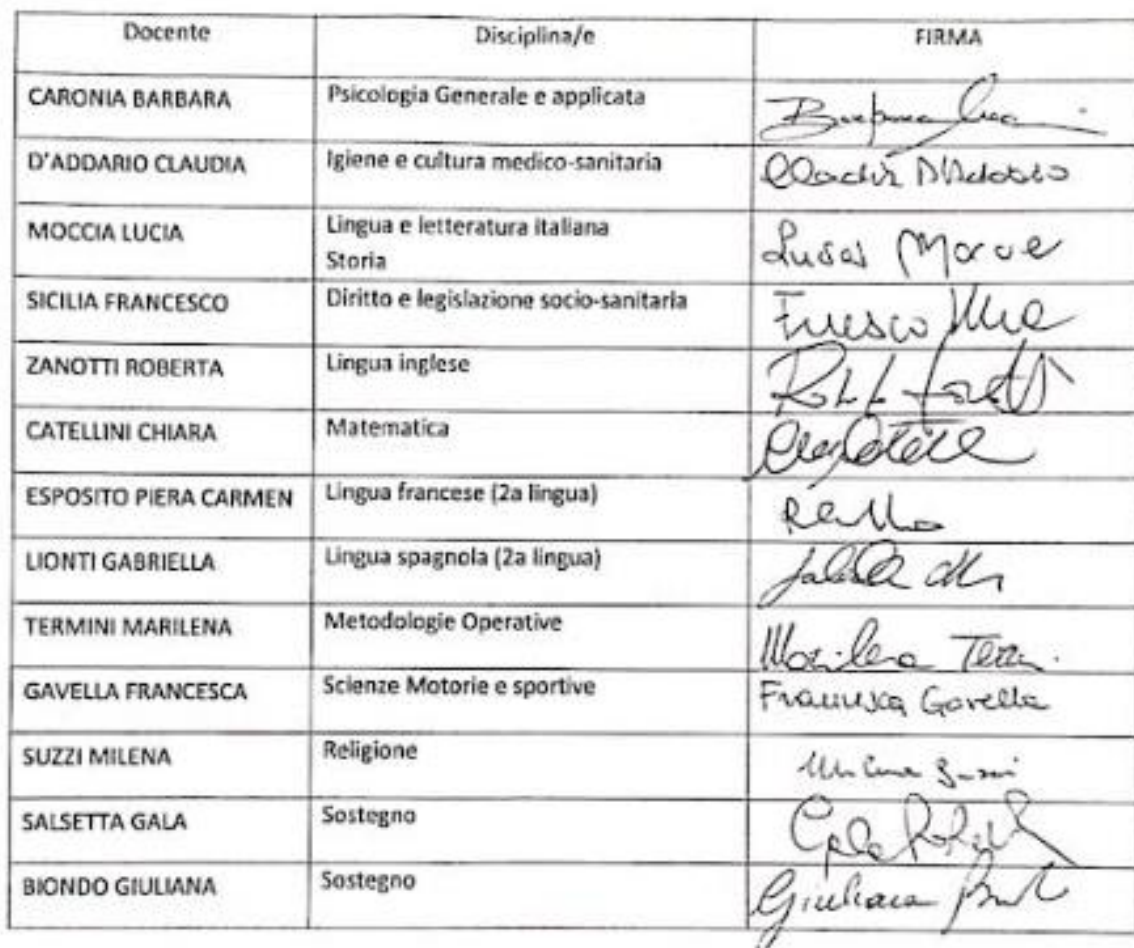 Docente Disciplina/e FIRMA
CARONIA BARBARA Psicologia Generale e applicata Barbara
D'ADDARIO CLAUDIA Igiene e cultura medico-sanitaria Claudia D'Addario
MOCCIA LUCIA Lingua e letteratura italiana Lucia Moccia
Storia
SICILIA FRANCESCO Diritto e legislazione socio-sanitaria
ZANOTTI ROBERTA Lingua inglese
CATELLINI CHIARA Matematica
ESPOSITO PIERA CARMEN Lingua francese (2a lingua)
LIONTI GABRIELLA Lingua spagnola (2a lingua)
TERMINI MARILENA Metodologie Operative Marilena
GAVELLA FRANCESCA Scienze Motorie e sportive Francesca Gavella
SUZZI MILENA Religione Milena Suzzi
SALSETTA GALA Sostegno Gala
BIONDO GIULIANA Sostegno Giuliana